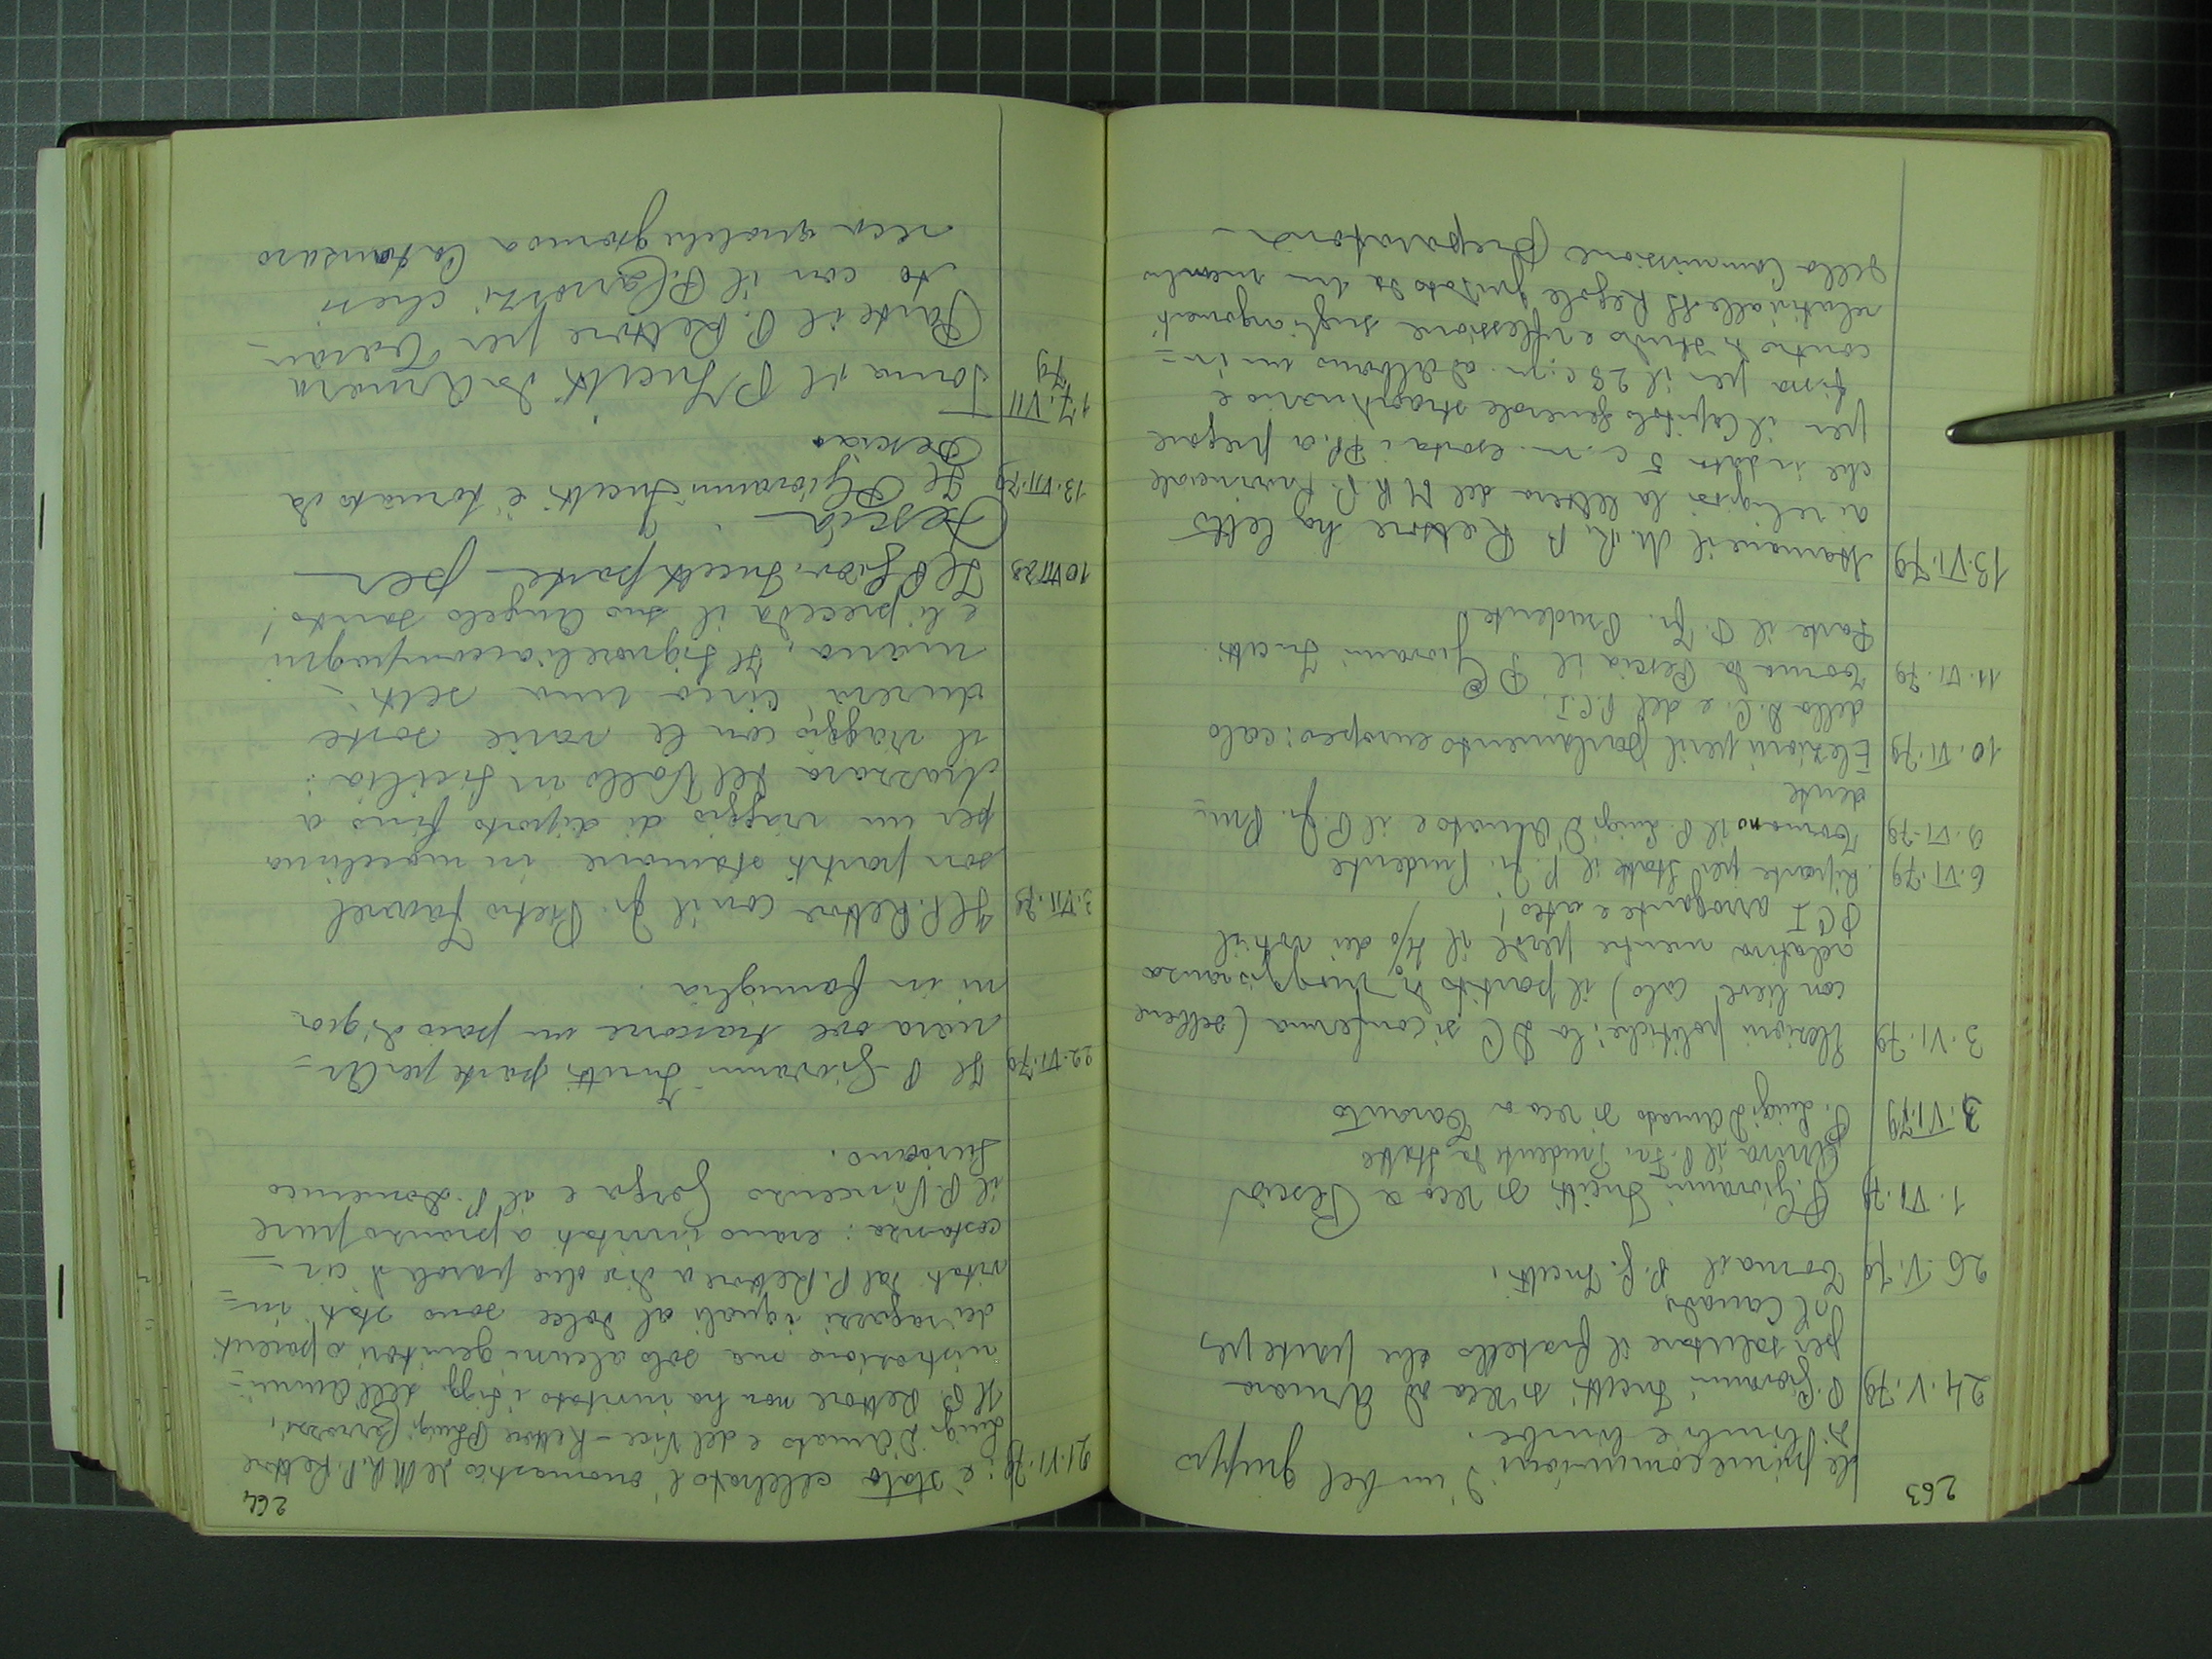 263
Le prime comunioni d'un bel gruppo
di bimbi e bimbe.
24.V.79 P. Giovanni Incitti si reca ad Arnara
per salutare il fratello che parte per
il Canadà
26.V.79 Torna il P. G. Incitti.
1.VI.79 P. Giovanni Incitti si reca a Pescia
Arriva il P. Fr. Prudente da Statte
3.VI.79 P. Luigi D'Amato si reca a Taranto
3.VI.79 Elezioni politiche: la DC si conferma (sebbene
con lieve calo) il partito di maggioranza
relativa mentre perde il 4% dei voti il
PCI arrogante e ateo!
6.VI.79 Riparte per Statte il P. Fr. Prudente
9.VI.79 Tornano il P. Luigi D'Amato e il P. Fr. Pru=
dente
10.VI.79 Elezioni per il parlamento europeo: calo
della D.C. e del P.C.I.
11.VI.79 Torna da Pescia il P. Giovanni Incitti.
Parte il P. Fr. Prudente
13.VI.79 Stamane il M.R.P. Rettore ha letto
ai religiosi la lettera del M.R.P. Provinciale
che in data 5 c.m. esorta i PP. a pregare
per il Capitolo Generale straordinario e
fissa per il 28 c.m. ad Albano un in=
contro di studio e riflessione sugli argomenti
relativi alle Regole guidato da un membro
della Commissione preparatoria.
264
21.VI.79: è stato celebrato l'onomastico del M.R.P. Rettore
Luigi D'Amato e del Vice-Rettore P. Luigi Carrozzi,
Il P. Rettore non ha invitato i Sigg. dell'Ammi=
nistrazione ma solo alcuni genitori o parenti
dei ragazzi i quali al dolce sono stati in=
vitati dal P. Rettore a dire due parole di cir=
costanza: erano invitati a pranzo pure
il P. Vincenzo Gorga e il P. Domenico
22.VI.79 Il P. Giovanni Incitti parte per Ar=
nara ove trascorre un paio di gior=
ni in famiglia.
3.VII.79 Il P. Rettore con il Fr. Pietro Favorel
son partiti stamane in macchina
per un viaggio di diporto fino a
Mazzara del Vallo in Sicilia:
il viaggio con le varie soste
durerà circa una setti=
mana; Il Signore li accompagni
e li preceda il suo Angelo santo!
10 VII 79 Il P. Giov. Incitti parte per
Pescia.
13.VII.79 Il P. Giovanni Incitti è tornato da
Pescia.
17.VII 79 Torna il P. Incitti da Arnara
Parte il P. Rettore per
to con il P. Carrozzi che si
reca qualche giorno a Catanzaro